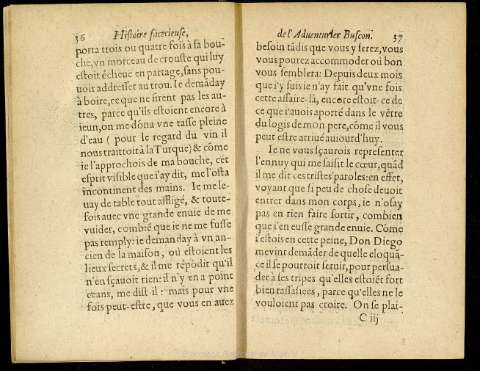 36 Histoire facetieuse,
porta trois ou quatre fois à sa bou-
che, vn morceau de crouste qui luy
estoit écheuë en partage, sans pou-
uoit addresser au trou. Ie demãday
à boire, ce que ne firent pas les au-
tres, parce qu'ils estoient encore à
ieun, on me dõna vne tasse pleine
d'eau ( pour le regard du vin il
nous traittoit à la Turque) & cõme
ie l'approchois de ma bouche, cet
esprit visible que i'ay dit, me l'osta
incontinent des mains. Ie me le-
uay de table tout affligé, & toute-
fois auec vne grande enuie de me
vuider, combiẽ que ie ne me fusse
pas remply: ie demanday à vn an-
cien de la maison, où estoient les
lieux secrets, & il me répõdit qu'il
n'en sçauoit rien: il n'y en a point
ceans, me dist il: mais pour vne
fois peut-estre, que vous en auez
de l'Aduenturier Buscon. 37
besoin tãdis que vous y serez, vous
vous pourez accommoder où bon
vous semblera: Depuis deux mois
que i'y suis ie n'ay fait qu'vne fois
cette affaire-là, encore estoit-ce de
ce que i'auois aporté dans le vẽtre
du logis de mon pere, cõme il vous
peut estre arriué auiourd'huy.
Ie ne vous sçaurois representer
l'ennuy qui me saisit le cœur, quãd
il me dit ces tristes paroles: en effet,
voyant que si peu de chose deuoit
entrer dans mon corps, ie n'osay
pas en rien faire sortir, combien
que i'en eusse grande enuie. Cõme
i'estois en cette peine, Don Diego
me vint demãder de quelle eloquã-
ce il se pourroit seruir, pour persua-
der à ses tripes qu'elles estoiẽt fort
bien rassasiées, parce qu'elles ne le
vouloient pas croire. On se plai-
C iij